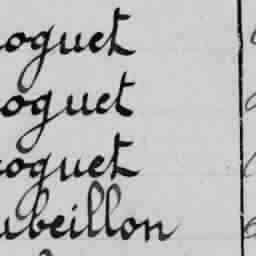 oguet
oguet
oguet
ubeillon